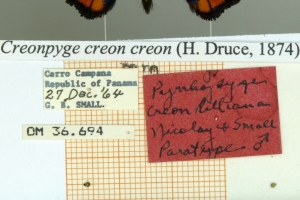 Creonpyge creon creon (H. Druce, 1874)
Cerro Campana
Republic of Panama
27 Dec. '64
G. B. SMALL.
OM 36.694
Pyrrhopyge
creon lilliana
Nicolay & Small
Paratype ♂